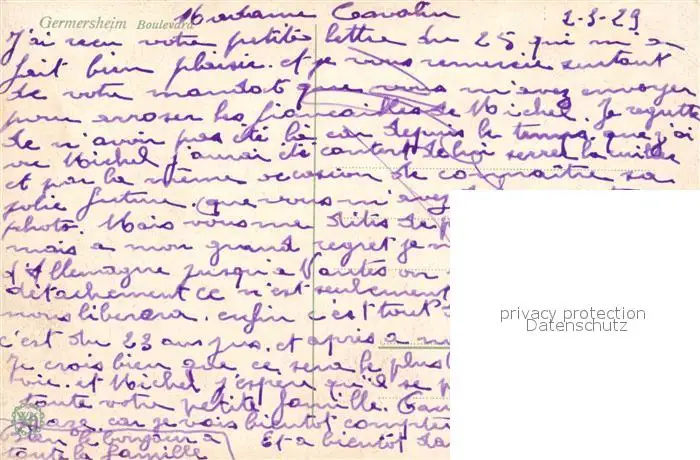 Germersheim Boulevard
Madame Cavolin 2-3-29
J'ai reçu votre petite lettre du 25 qui m'a
fait bien plaisir. et je vous remercie surtout
de votre mandat que vous m'avez envoyer
pour arroser les fiançailles de Michel. Je regrette
de n'avoir pas été là car depuis le temps que j'ai
vu Michel j'aurai été content de lui serrer la
et par la même occasion de connaître sa
jolie future. que vous m'avez
photo. Mais vous me dites de
mais a mon grand regret je
d'Allemagne jusqu'a Nantes on
détachement ce n'est seulement
nous libérera. enfin c'est tout
c'est du 23 ans jus. et après a
Je crois bien que ce sera le plus
vie. et Michel j'espère qu'il se
toute votre petite famille.
car je vais bientot
le bonjour a Et a bientot
toute la famille
privacy protection
Datenschutz